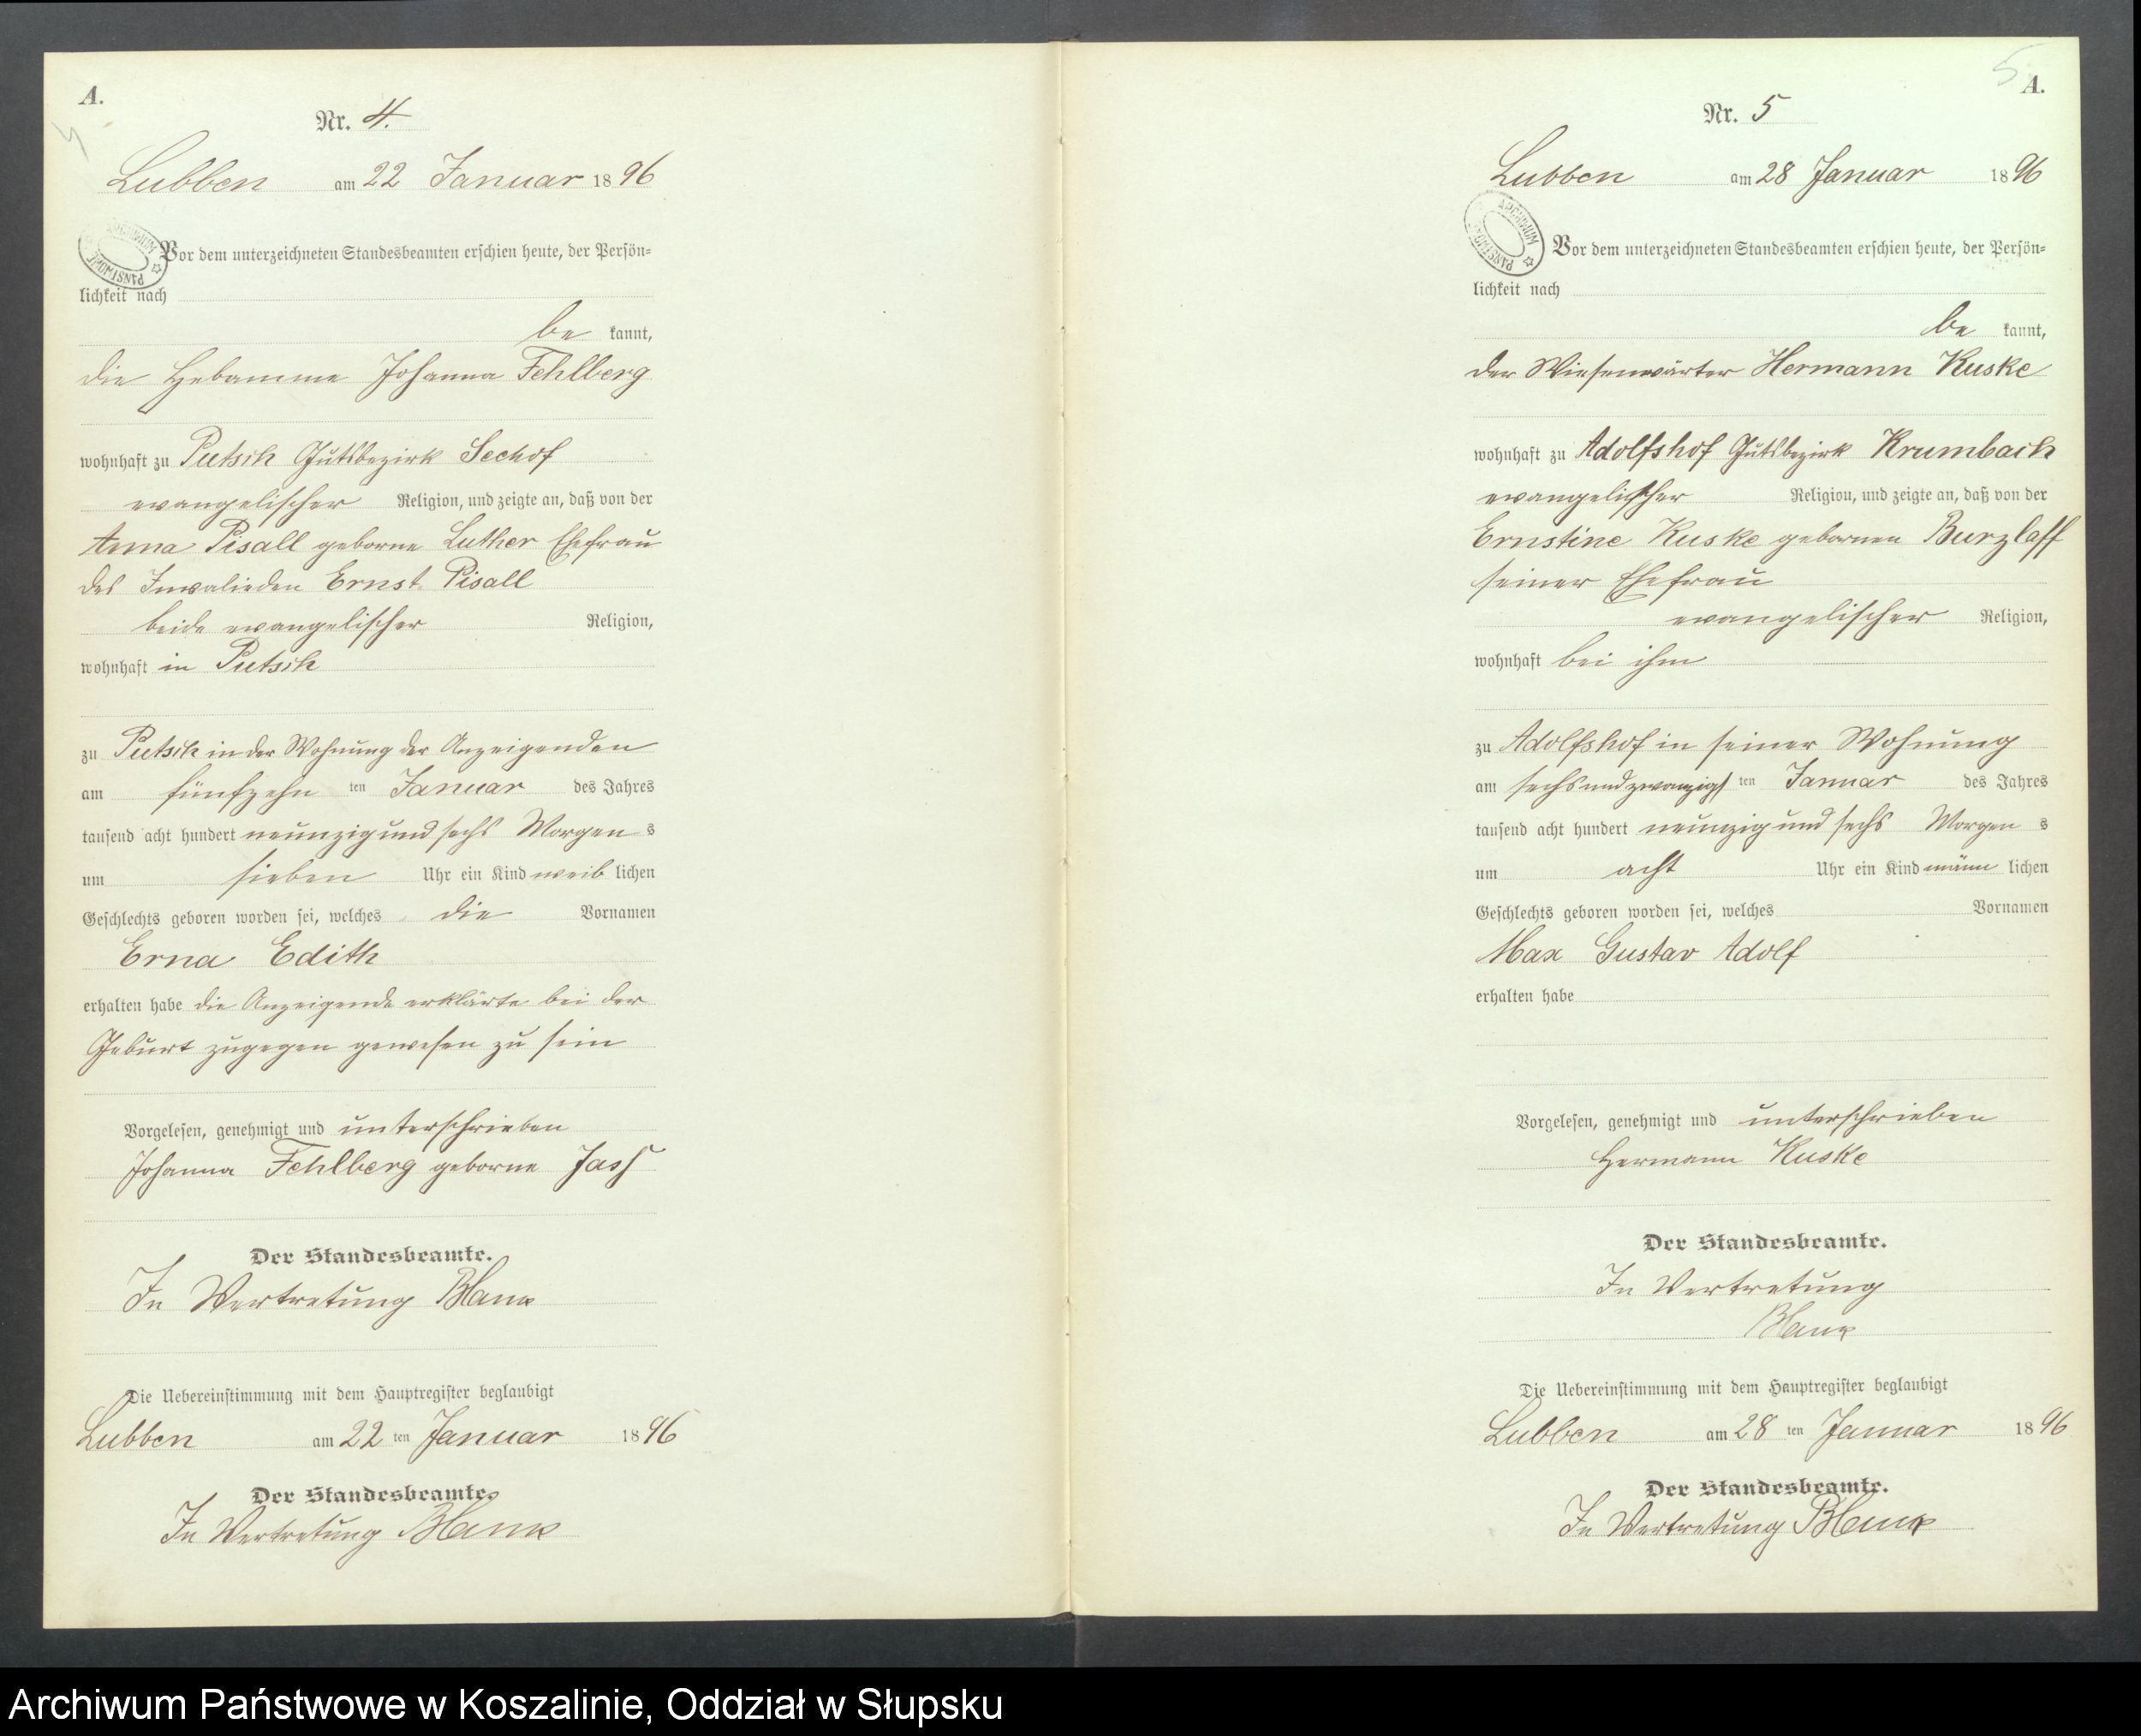 A.
4
Nr. 4.
Lubben am 22 Januar 1896
ARCHIWUM PAŃSTWOWE
Vor dem unterzeichneten Standesbeamten erschien heute, der Persön-
lichkeit nach
be kannt,
die Hebamme Johanna Fehlberg
wohnhaft zu Puetsch Gutsbezirk Seehof
evangelischer Religion, und zeigte an, daß von der
Anna Pisall geborne Luther Ehefrau
des Invalieden Ernst Pisall
beide evangelischer Religion,
wohnhaft in Puetsch
zu Puetsch in der Wohnung der Anzeigenden
am fünfzehn ten Januar des Jahres
tausend acht hundert neunzig und sechs Morgen s
um sieben Uhr ein Kind weib lichen
Geschlechts geboren worden sei, welches die Vornamen
Erna Edith
erhalten habe die Anzeigende erklärte bei der
Geburt zugegen gewesen zu sein
Vorgelesen, genehmigt und unterschrieben
Johanna Fehlberg geborne Jass
Der Standesbeamte.
In Vertretung
Die Uebereinstimmung mit dem Hauptregister beglaubigt
Lubben am 22 ten Januar 1896
Der Standesbeamte.
In Vertretung
5
A.
Nr. 5
Lubben am 28 Januar 1896
ARCHIWUM PAŃSTWOWE
Vor dem unterzeichneten Standesbeamten erschien heute, der Persön-
lichkeit nach
be kannt,
der Wiesenwärter Hermann Kuske
wohnhaft zu Adolfshof Gutsbezirk Krumbach
evangelischer Religion, und zeigte an, daß von der
Ernstine Kuske gebornen Burzlaff
seiner Ehefrau
evangelischer Religion,
wohnhaft bei ihm
zu Adolfshof in seiner Wohnung
am sechsundzwanzigs ten Januar des Jahres
tausend acht hundert neunzig und sechs Morgen s
um acht Uhr ein Kind männ lichen
Geschlechts geboren worden sei, welches Vornamen
Max Gustav Adolf
erhalten habe
Vorgelesen, genehmigt und unterschrieben
Hermann Kuske
Der Standesbeamte.
In Vertretung
Die Uebereinstimmung mit dem Hauptregister beglaubigt
Lubben am 28 ten Januar 1896
Der Standesbeamte.
In Vertretung
Archiwum Państwowe w Koszalinie, Oddział w Słupsku